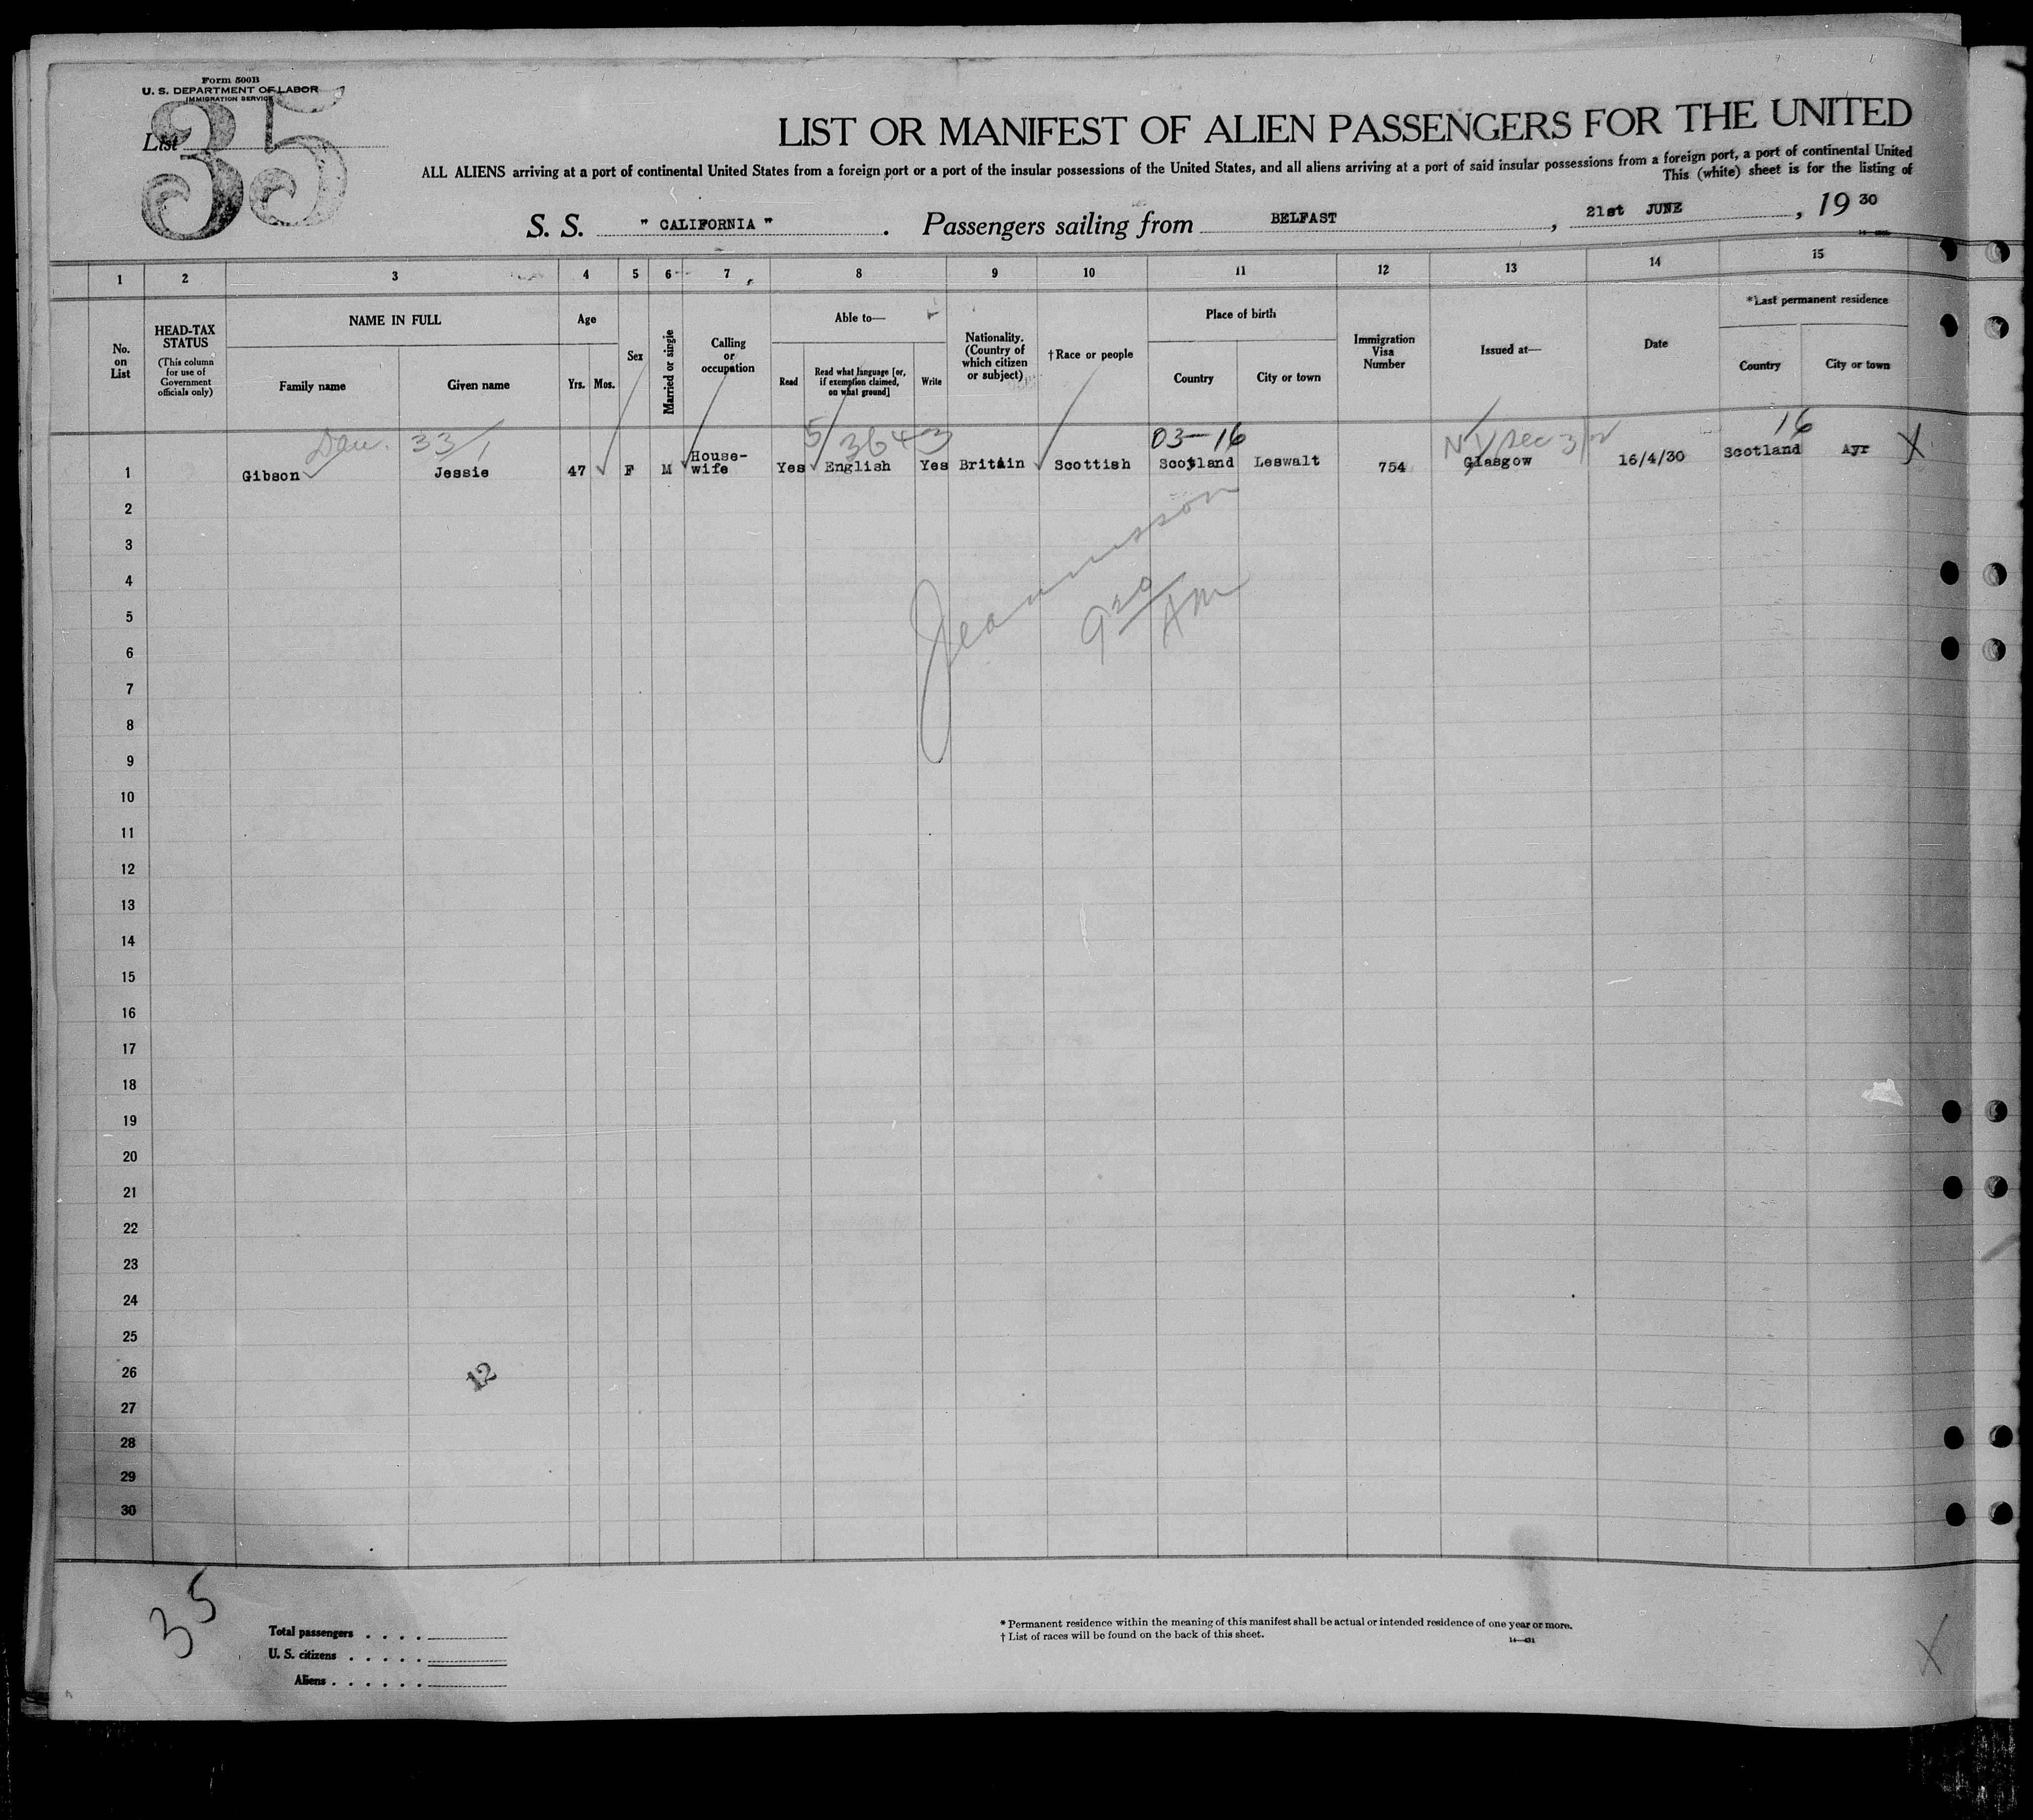 Form 500B
U. S. DEPARTMENT OF LABOR
IMMIGRATION SERVICE
List
35
LIST OR MANIFEST OF ALIEN PASSENGERS FOR THE UNITED
ALL ALIENS arriving at a port of continental United States from a foreign port or a port of the insular possessions of the United States, and all aliens arriving at a port of said insular possessions from a foreign port, a port of continental United
This (white) sheet is for the listing of
S. S. " CALIFORNIA " . Passengers sailing from BELFAST , 21st JUNE , 19 30
1 2 3 4 5 6 7 8 9 10 11 12 13 14 15
No. on List
HEAD-TAX STATUS
(This column for use of Government officials only)
NAME IN FULL
Family name Given name
Age
Yrs. Mos.
Sex
Married or single
Calling or occupation
Able to—
Read
Read what language [or, if exemption claimed, on what ground]
Write
Nationality. (Country of which citizen or subject)
†Race or people
Place of birth
Country City or town
Immigration Visa Number
Issued at—
Date
*Last permanent residence
Country City or town
33/1 5/3643 03-16 16
1 Gibson Jessie 47 F M House-wife Yes English Yes Britain Scottish Scotland Leswalt 754 Glasgow 16/4/30 Scotland Ayr X
2
3
4
5
6
7
8
9
10
11
12
13
14
15
16
17
18
19
20
21
22
23
24
25
26
27
28
29
30
9 30 AM
12
35
Total passengers . . . .
U. S. citizens . . . . .
Aliens . . . . . .
* Permanent residence within the meaning of this manifest shall be actual or intended residence of one year or more.
† List of races will be found on the back of this sheet.
X